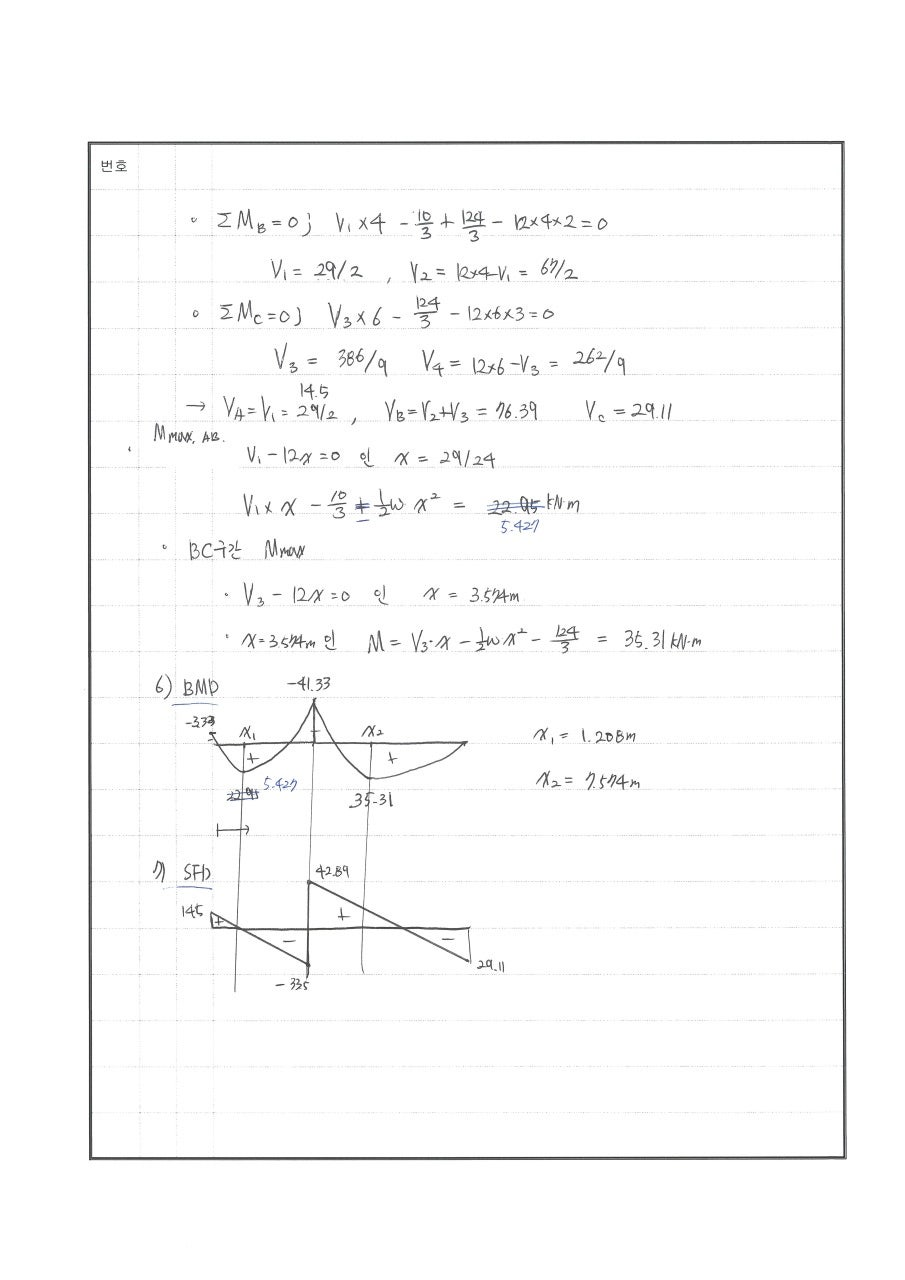 번호
◦ ΣM_B=0; V₁×4 - 10/3 + 124/3 - 12×4×2=0
V₁ = 29/2 , V₂ = 12×4-V₁ = 67/2
◦ ΣM_C=0; V₃×6 - 124/3 - 12×6×3=0
V₃ = 386/9 V₄ = 12×6-V₃ = 262/9
14.5
→ V_A=V₁= 29/2 , V_B=V₂+V₃ = 76.39 V_C = 29.11
Mmax, AB.
V₁-12x=0 인 x = 29/24
V₁×x - 10/3 - 1/2 w x² = 22.95 kN·m
5.427
· BC구간 Mmax
· V₃-12x=0 인 x = 3.574m
· x=3.574m 인 M = V₃·x - 1/2 w x² - 124/3 = 35.31 kN·m
6) BMD -41.33
-3.33 x₁ - x₂ x₁ = 1.208m
+ +
22.95 5.427 35.31 x₂ = 7.574m
7) SFD 42.89
14.5 + +
- -
-33.5 29.11